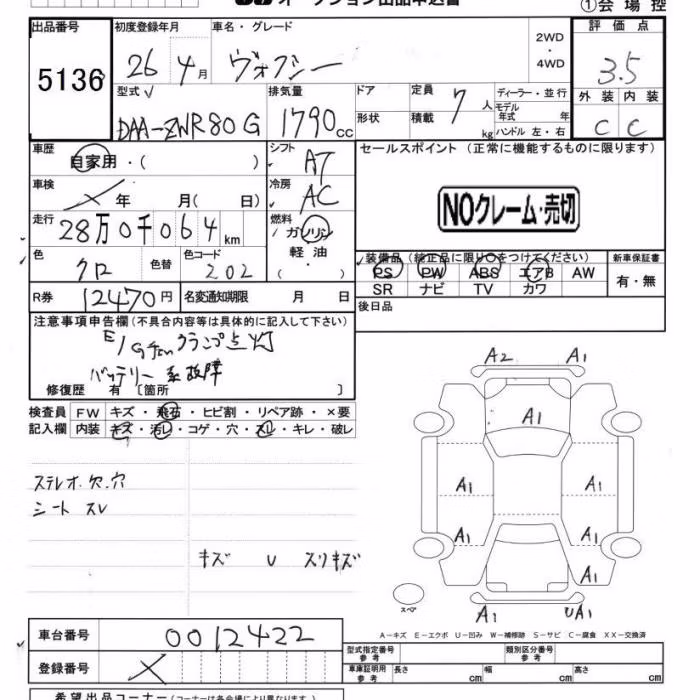 オークション出品申込書
①会場控
出品番号 5136
初度登録年月 26 4月
車名・グレード ヴォクシー
2WD ・ 4WD
評価点 3.5
外装 内装
C C
型式 DAA-ZWR80G
排気量 1790cc
ドア
形状
定員 7人
積載 kg
ディーラー・並行
モデル年式 年
ハンドル 左・右
車歴 自家用・( )
シフト AT
セールスポイント (正常に機能するものに限ります)
車検 × 年 月( 日)
冷房 AC
NOクレーム・売切
走行 28万0千064km
燃料 ガソリン
軽油
( ・ )
色 クロ
色替
色コード 202
装備品(純正品に限り○をつけてください)
新車保証書
PS PW ABS エアB AW
SR ナビ TV カワ
有・無
R券 12470円
名変通知期限 月 日
後日品
注意事項申告欄(不具合内容等は具体的に記入して下さい)
ランプ点灯
バッテリー系故障
修復歴 有 〔箇所 〕
検査員 FW キズ・飛石・ヒビ割・リペア跡・×要
記入欄 内装 キズ・汚レ・コゲ・穴・スレ・キレ・破レ
ステレオ欠.穴
シート スレ
キズ U スリキズ
A2 A1
A1
A1 A1
A1 A1
A1
A1 UA1
スペア
A-キズ E-エクボ U-凹み W-補修跡 S-サビ C-腐食 XX-交換済
車台番号 0012422
登録番号 ×
型式指定番号 参考
類別区分番号 参考
車庫証明用 参考 長さ cm 幅 cm 高さ cm
希望出品コーナー(コーナーは各会場により異なります。)